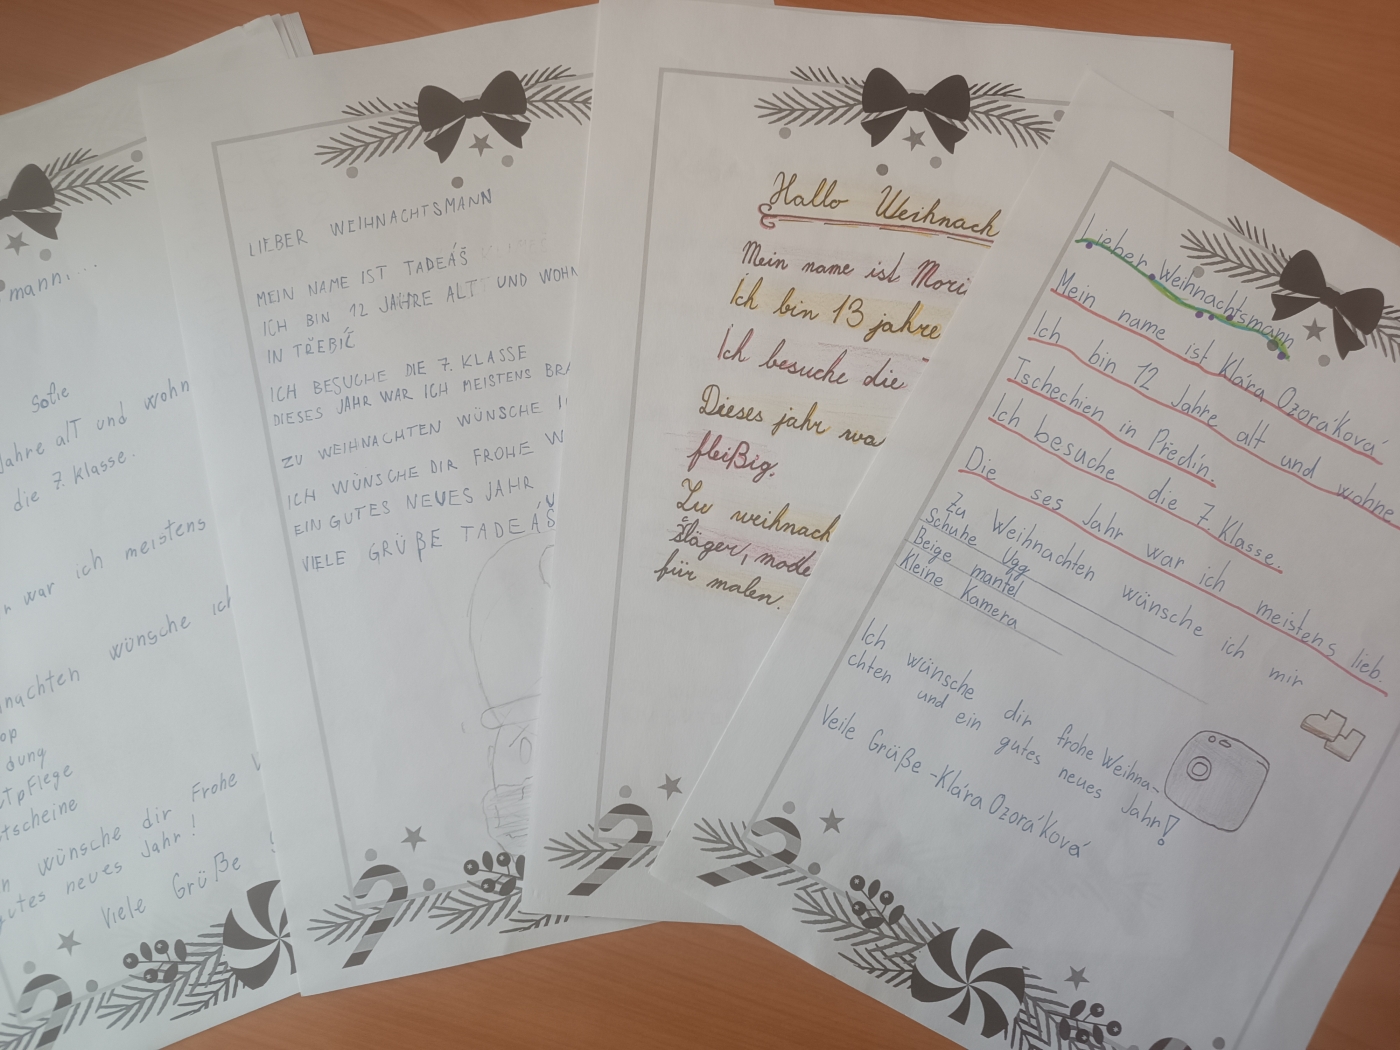 mann....
Sofie
Jahre alT und wohn
die 7. Klasse.
war ich meistens
wünsche ich
nachten
op
dung
utpflege
tscheine
wünsche dir Frohe
gutes neues Jahr!
Viele Grüße
LIEBER WEIHNACHTSMANN
MEIN NAME IST TADEÁŠ
ICH BIN 12 JAHRE ALT UND WOHN
IN TŘEBÍČ
ICH BESUCHE DIE 7. KLASSE
DIESES JAHR WAR ICH MEISTENS BRA
ZU WEIHNACHTEN WÜNSCHE I
ICH WÜNSCHE DIR FROHE W
EIN GUTES NEUES JAHR
VIELE GRÜßE TADEÁŠ
Hallo Weihnach
Mein name ist Mori
Ich bin 13 jahre
Ich besuche die
Dieses jahr wa
fleißig.
Zu weihnach
släger, mode
für malen.
Lieber Weihnachtsmann
Mein name ist Klára Ozoráková
Ich bin 12 Jahre alt und wohne
Tschechien in Předín.
Ich besuche die 7. Klasse.
Die ses Jahr war ich meistens lieb.
Zu Weihnachten wünsche ich mir
Schuhe Ugg
Beige mantel
Kleine Kamera
Ich wünsche dir frohe Weihna-
chten und ein gutes neues Jahr!
Veile Grüße - Klára Ozoráková